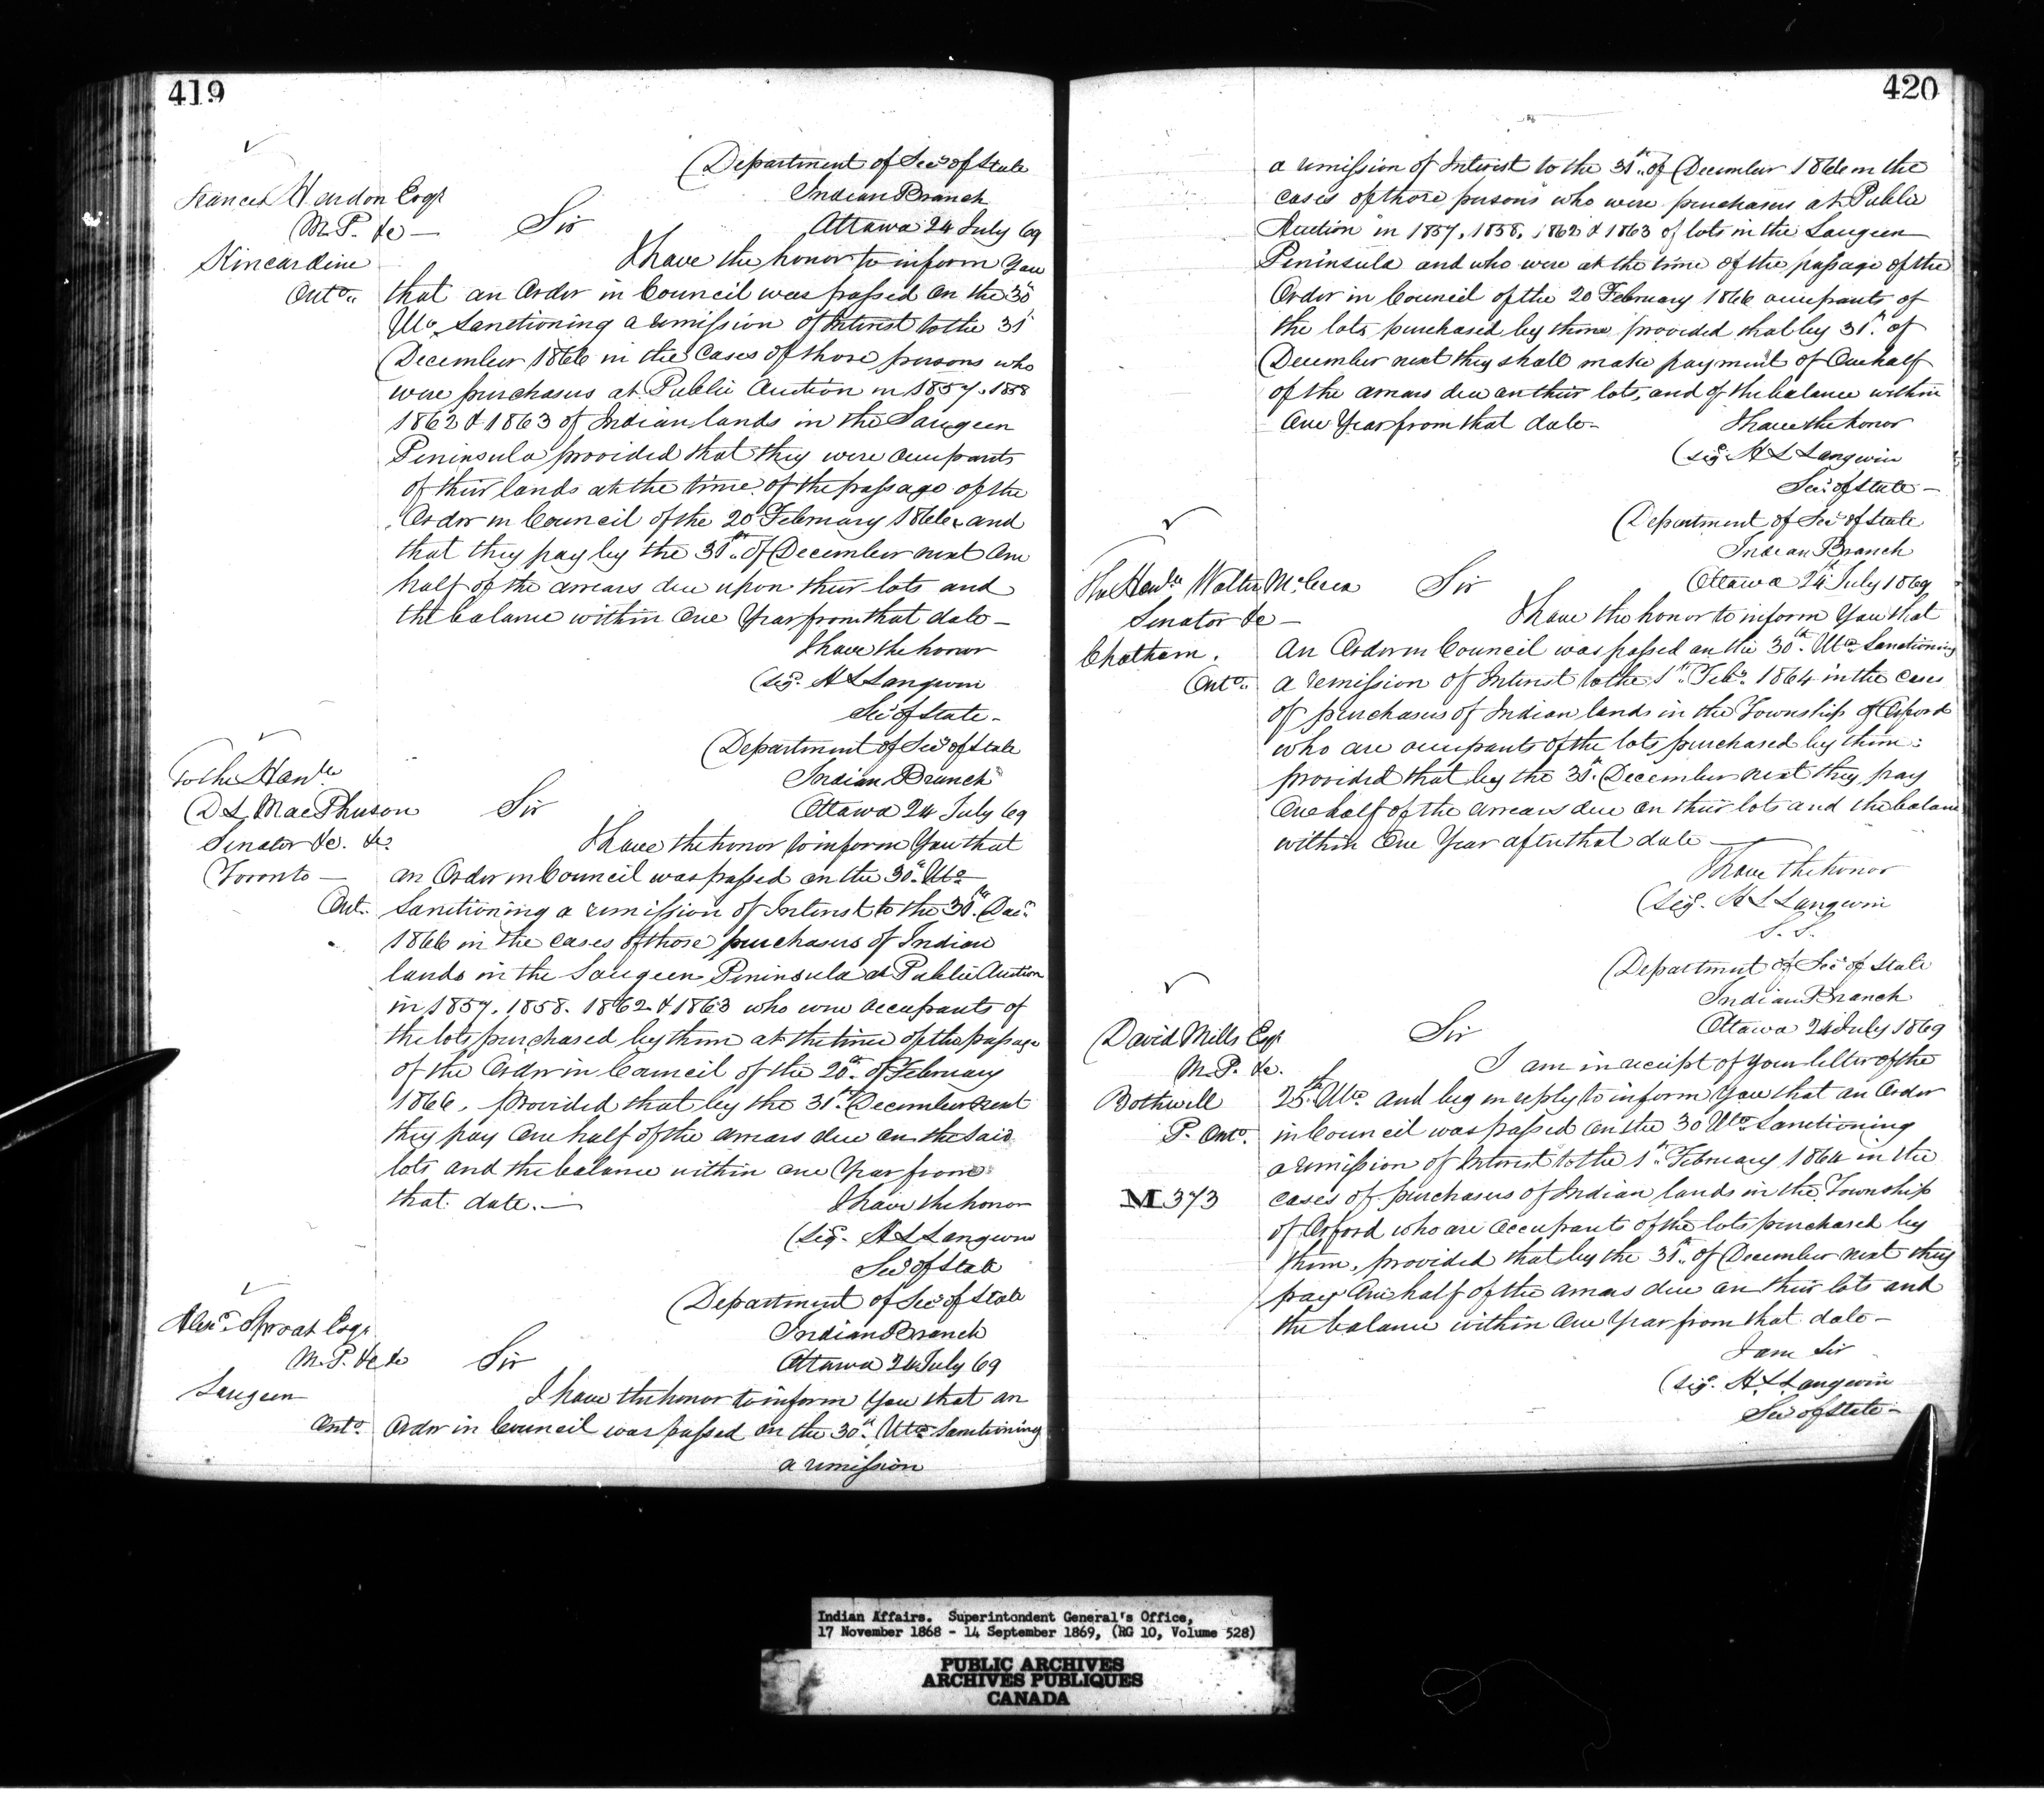 419
Department of Secy of State
Indian Branch
Ottawa 24 July 69
Frances Hurdon Esqr
M.P. &c —
Kincardine
Onto..
Sir
I have the honor to inform You
that an Order in Council was passed on the 30th
Ulto. Sanctioning a remission of Interest to the 31st
December 1866 in the Cases of those persons who
were purchasers at Public Auction in 1857. 1858
1862 & 1863 of Indian lands in the Saugeen
Peninsula provided that they were Occupants
of their lands at the time of the passage of the
Order in Council of the 20 February 1866 and
that they pay by the 31st.. of December next One
half of the arrears due upon their lots and
the balance within One Year from that date —
I have the honor
(sig. H L Langevin
Sec of State —
Department of Secy of State
Indian Branch
Ottawa 24 July 69
To the Honble
D L MacPherson
Senator &c. &c.
Toronto —
Ont.
Sir
I have the honor to inform You that
an Order in Council was passed on the 30th. Ulto
Sanctioning a remission of Interest to the 31st. Decr.
1866 in the Cases of those purchasers of Indian
lands in the Saugeen Peninsula at Public Auction
in 1857. 1858. 1862 & 1863 who were Occupants of
the lots purchased by them at the time of the passage
of the Order in Council of the 20th. of February
1866. provided that by the 31st. December next
they pay One half of the arrears due on the said
lots and the balance within one Year from
that date. —
I have the honor
(Sig. H L Langevin
Secy of State
Department of Secy of State
Indian Branch
Ottawa 24 July 69
Alexr. Sproat Esqr.
M.P. &c &c
Saugeen
Onto.
Sir
I have the honor to inform You that an
Order in Council was passed on the 30th. Ulto Sanctioning
a remission
420
a remission of Interest to the 31st.. of December 1866 in the
Cases of those persons who were purchasers at Public
Auction in 1857, 1858, 1862 & 1863 of lots in the Saugeen
Peninsula and who were at the time of the passage of the
Order in Council of the 20 February 1866 occupants of
the lots purchased by them provided that by 31st. of
December next they shall make payment of One half
of the arrears due on their lots, and of the balance within
One Year from that date —
I have the honor
(sig. H L Langevin
Sec. of State —
Department of Secy of State
Indian Branch
Ottawa 24th July 1869
The Honble Walter McCrea
Senator &c —
Chatham.
Onto..
Sir
I have the honor to inform You that
An Order in Council was passed on the 30th. Ulto Sanctioning
a remission of Interest to the 1st.. Feby. 1864 in the Cases
of purchasers of Indian lands in the Township of Orford
who are occupants of the lots purchased by them:
provided that by the 31st. December next they pay
One half of the arrears due on their lots and the balance
within One Year after that date —
I have the honor
(Sig. H L Langevin
S. S.
Department of Secy of State
Indian Branch
Ottawa 24 July 1869
David Mills Esqr
M.P. &c.
Bothwell
P. Onto.
M 373
Sir
I am in receipt of your letter of the
25th. Ulto and beg in reply to inform You that an Order
in Council was passed on the 30 Ulto Sanctioning
a remission of Interest to the 1st.. February 1864 in the
cases of purchasers of Indian lands in the Township
of Orford who are Occupants of the lots purchased by
them, provided that by the 31st.. of December next they
pay One half of the arrears due on their lots and
the balance within One Year from that date —
I am Sir
(sig. H. L. Langevin
Sec of State —
Indian Affairs. Superintendent General's Office,
17 November 1868 - 14 September 1869, (RG 10, Volume 528)
PUBLIC ARCHIVES
ARCHIVES PUBLIQUES
CANADA